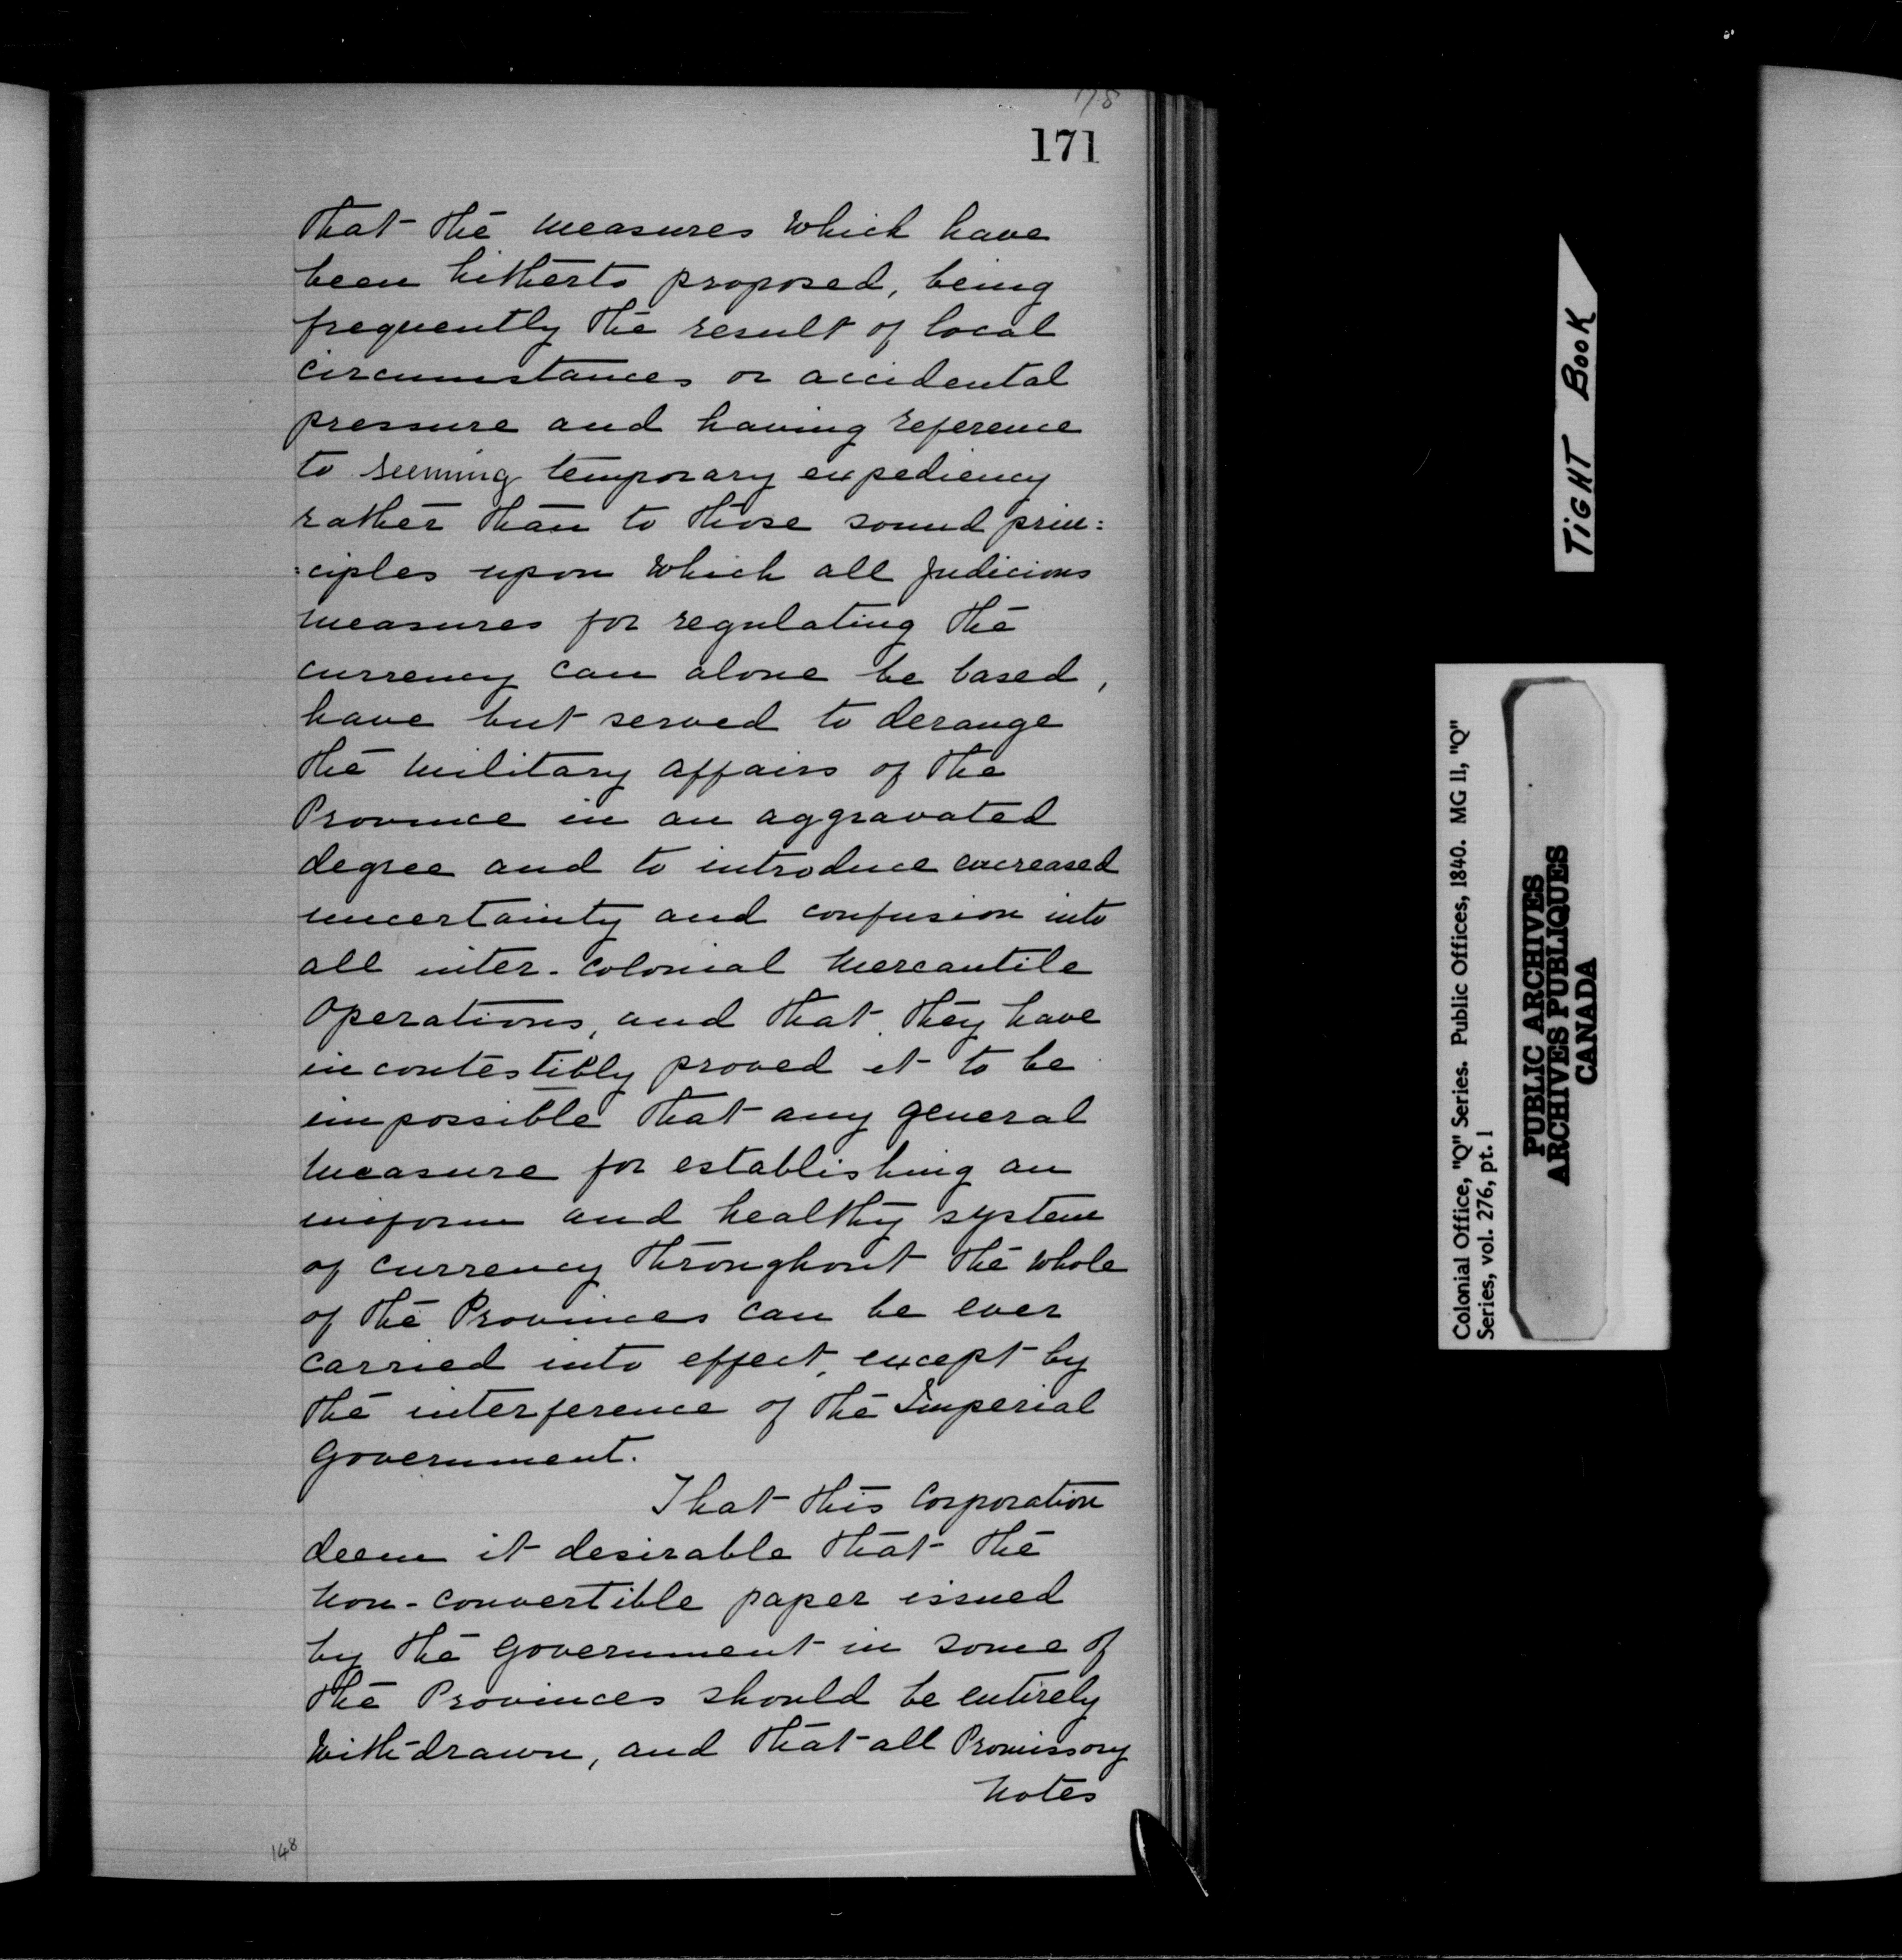 178
171
that the measures which have
been hitherto proposed, being
frequently the result of local
circumstances or accidental
pressure and having reference
to seeming temporary expediency
rather than to those sound prin:
:ciples upon which all judicious
measures for regulating the
currency can alone be based,
have but served to derange
the military affairs of the
Province in an aggravated
degree and to introduce encreased
uncertainty and confusion into
all inter-colonial mercantile
operations, and that they have
incontestibly proved it to be
impossible that any general
measure for establishing an
uniform and healthy system
of currency throughout the whole
of the Provinces can be ever
carried into effect, except by
the interference of the Imperial
Government.
That this Corporation
deem it desirable that the
non-convertible paper issued
by the Government in some of
the Provinces should be entirely
with-drawn, and that all Promissory
notes
148
TIGHT BOOK
Colonial Office, "Q" Series. Public Offices, 1840. MG 11, "Q"
Series, vol. 276, pt. 1
PUBLIC ARCHIVES
ARCHIVES PUBLIQUES
CANADA